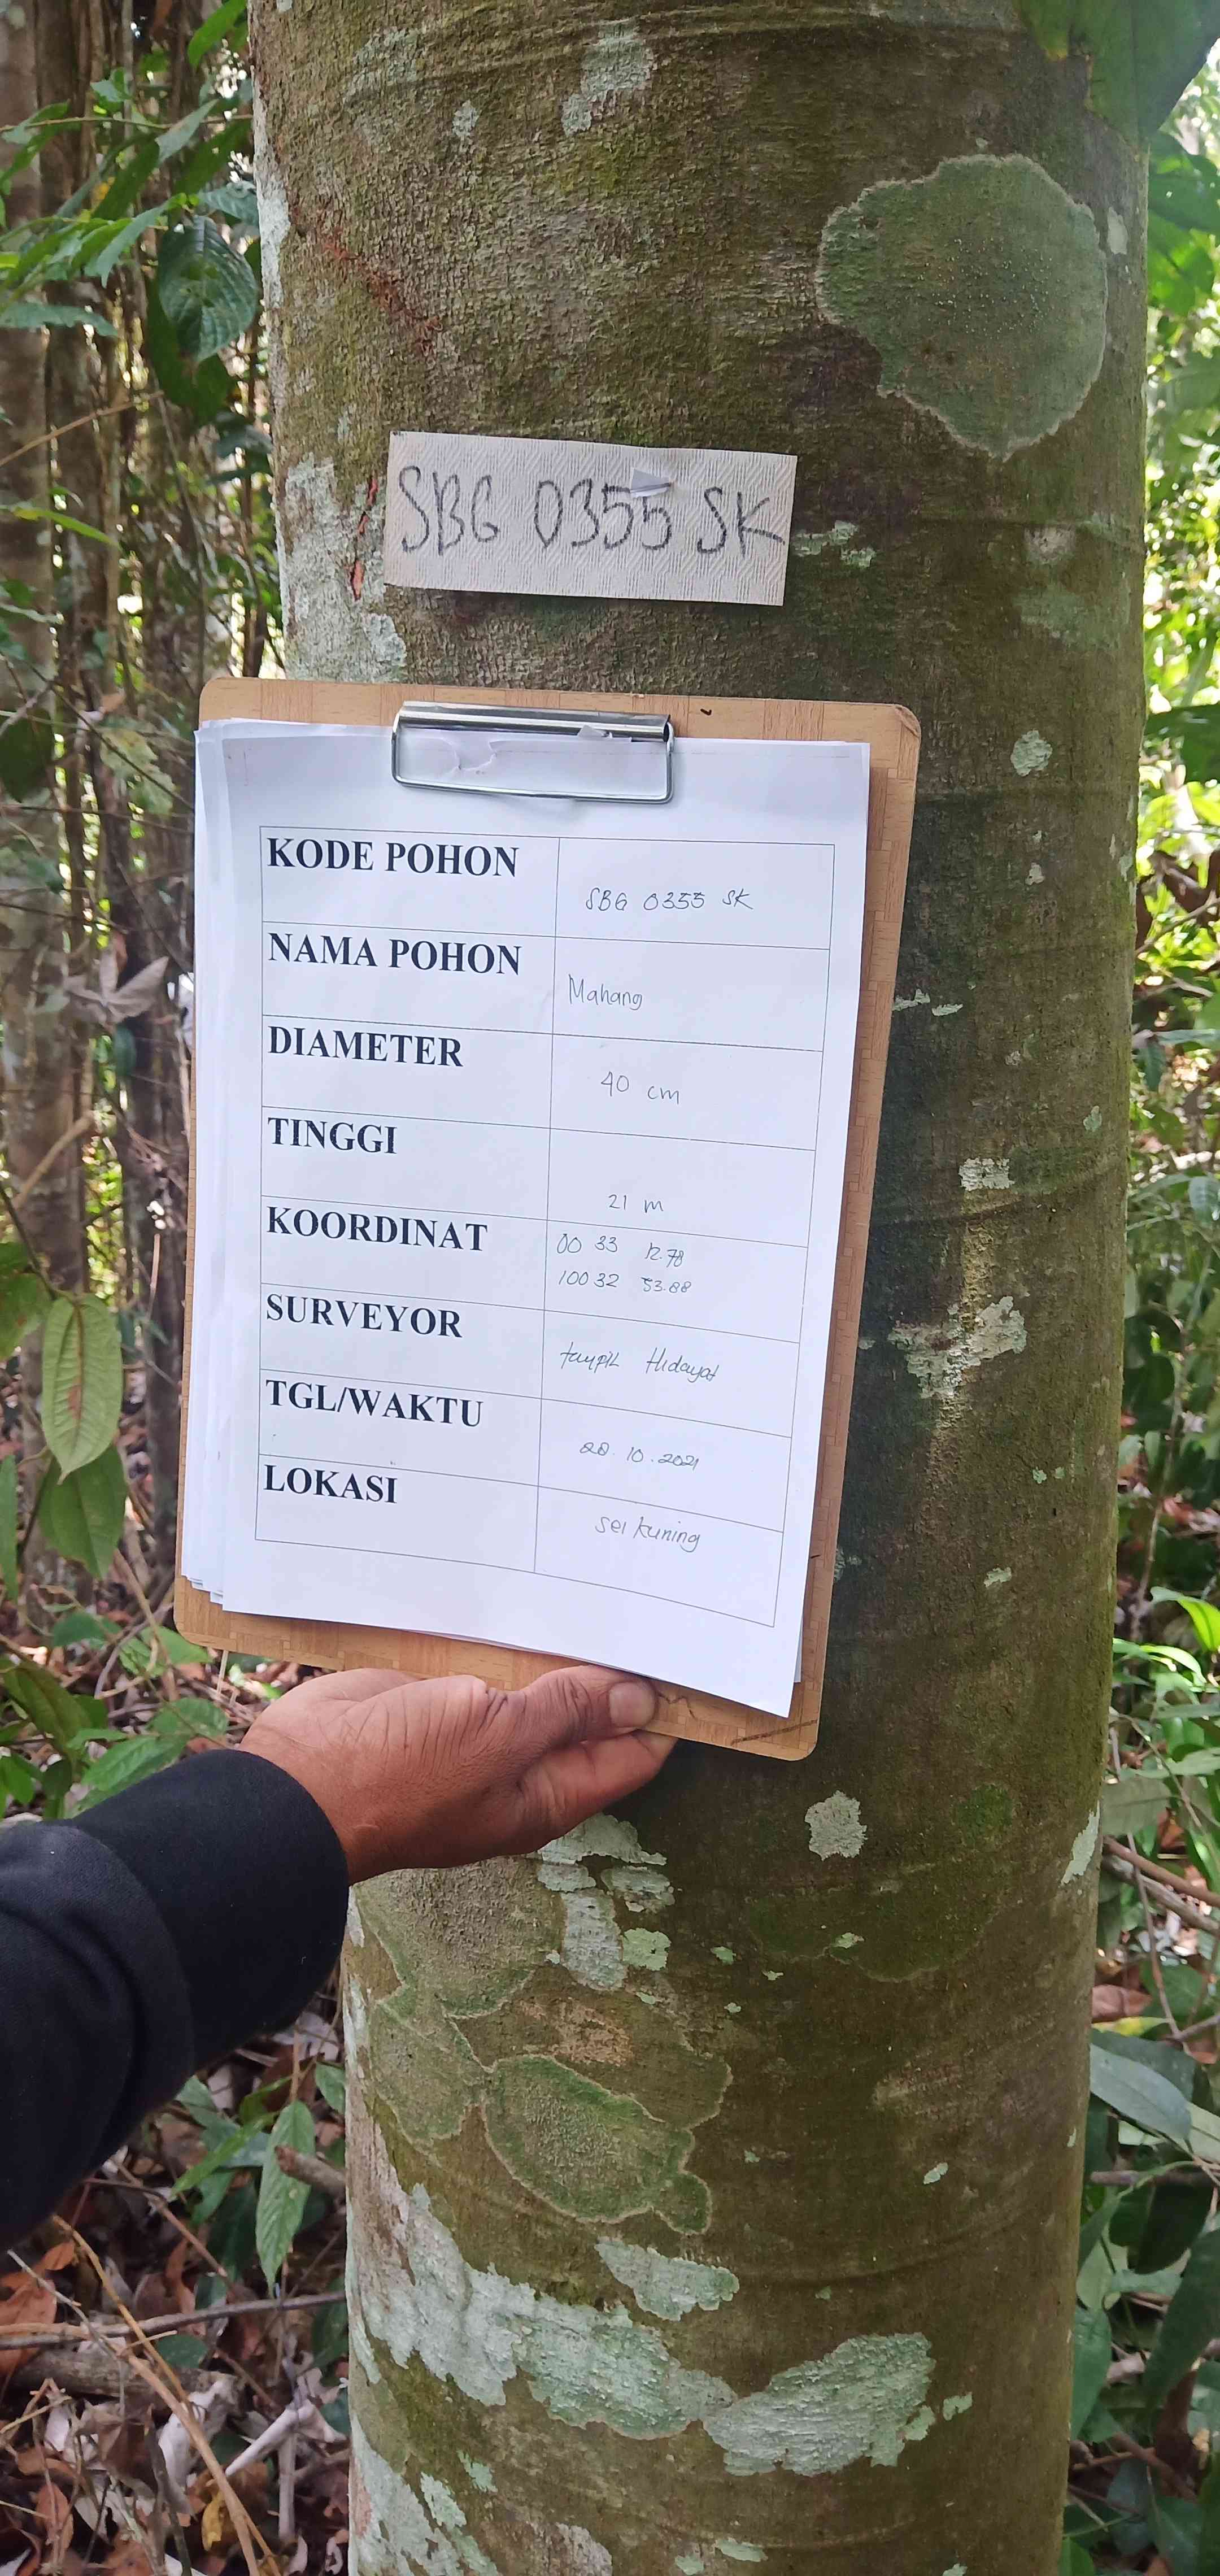 SBG 0355 SK
KODE POHON SBG 0355 SK
NAMA POHON Mahang
DIAMETER 40 cm
TINGGI 21 m
KOORDINAT 00 33 12.78
100 32 53.88
SURVEYOR Hidayat
TGL/WAKTU 28.10.2021
LOKASI Sei kuning